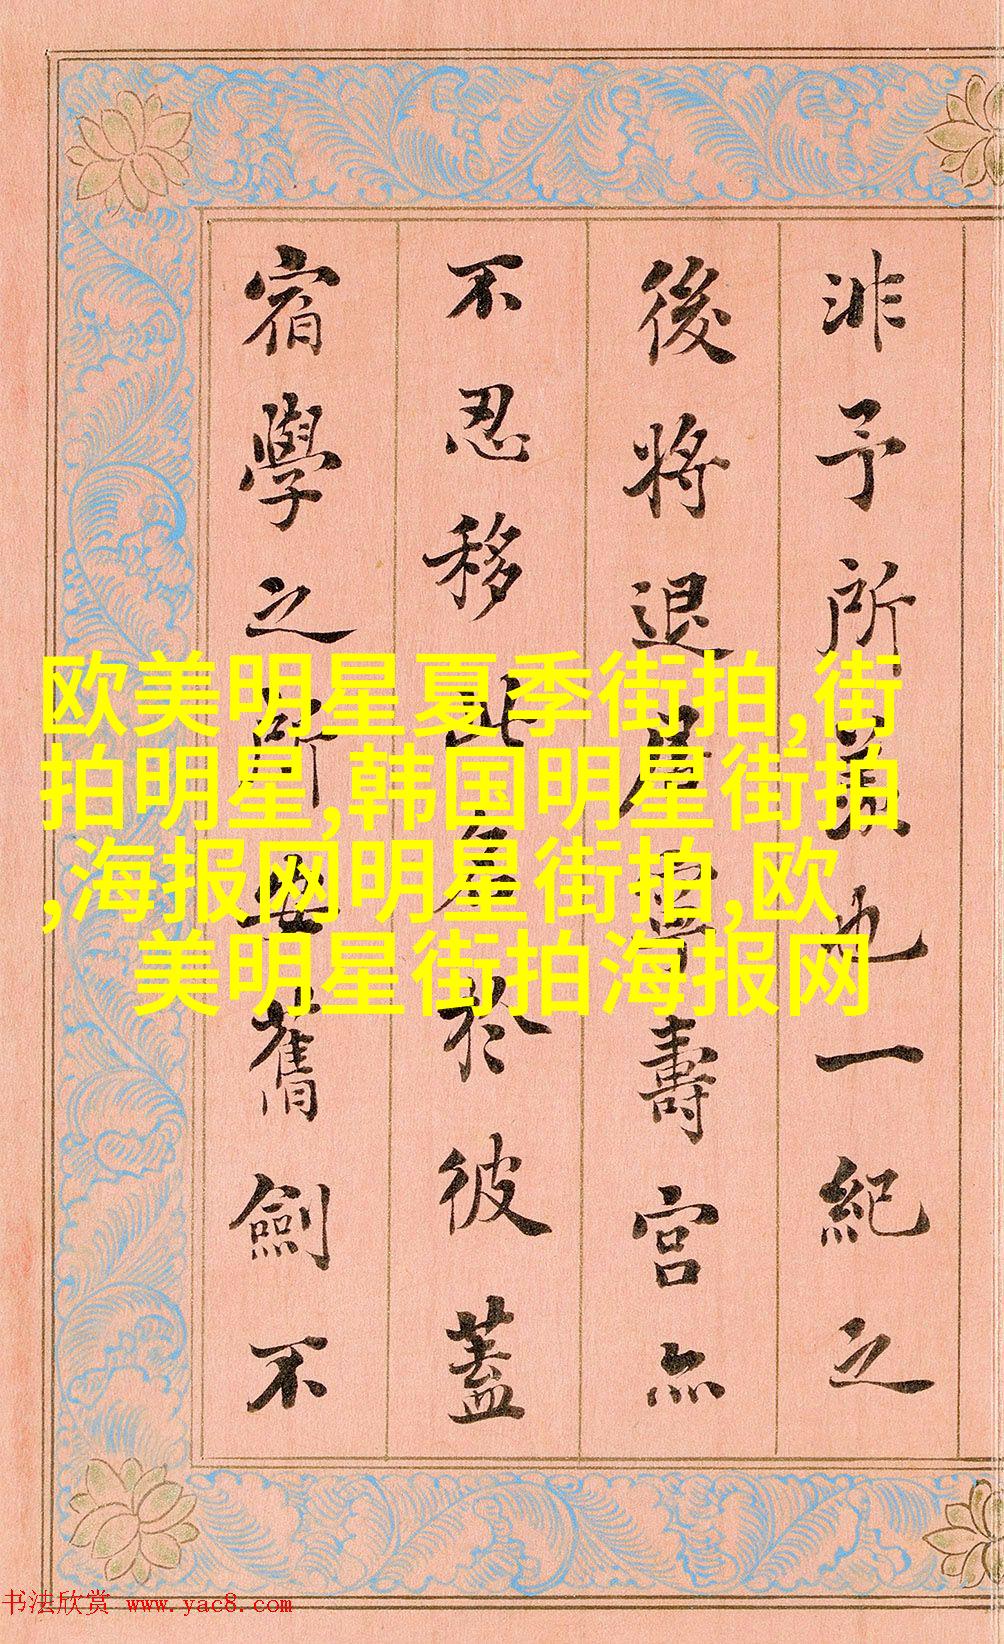 非予所也一紀之
後將退居寧壽宮亦
不忍移此於彼蓋
宿學之所安舊劍不
欧美明星夏季街拍,街
拍明星,韩国明星街拍
,海报网明星街拍,欧
美明星街拍海报网
书法欣赏 www.yac8.com